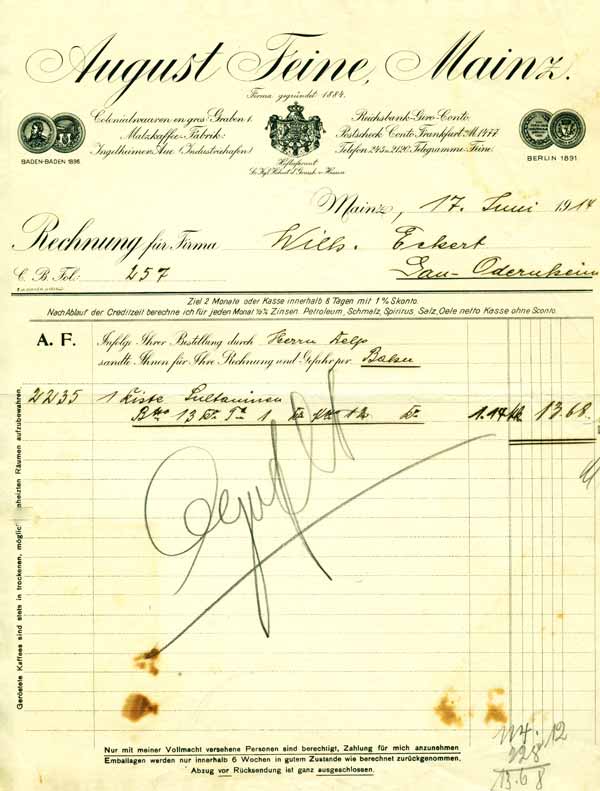 August Feine, Mainz.
Firma gegründet 1884.
Colonialwaaren en gros: Graben 1.
Malzkaffee-Fabrik:
Ingelheimer Aue (Industriehafen)
Reichsbank-Giro-Conto.
Postscheck Conto Frankfurt a/M. 1477
Telefon 245 u. 2120. Telegramme: Feine.
BADEN-BADEN 1896
Hoflieferant
BERLIN 1891
Mainz, 17. Juni 1914
Rechnung für Firma Wilh. Eckert
C. B. Fol: 257 Gau-Odernheim
Ziel 2 Monate oder Kasse innerhalb 8 Tagen mit 1% Skonto.
Nach Ablauf der Creditzeit berechne ich für jeden Monat ½% Zinsen. Petroleum, Schmalz, Spiritus, Salz, Oele netto Kasse ohne Sconto.
A. F. Infolge Ihrer Bestellung durch Herrn Kelp
sandte Ihnen für Ihre Rechnung und Gefahr per Bahn
2235 1 Kiste Sultaninen
Btto 13 Ko Ta 1 Ko 12 Ko 1.14 13.68
Geröstete Kaffees sind stets in trockenen, möglichst geheizten Räumen aufzubewahren.
114.12
228
13.68
Nur mit meiner Vollmacht versehene Personen sind berechtigt, Zahlung für mich anzunehmen
Emballagen werden nur innerhalb 6 Wochen in gutem Zustande wie berechnet zurückgenommen,
Abzug vor Rücksendung ist ganz ausgeschlossen.